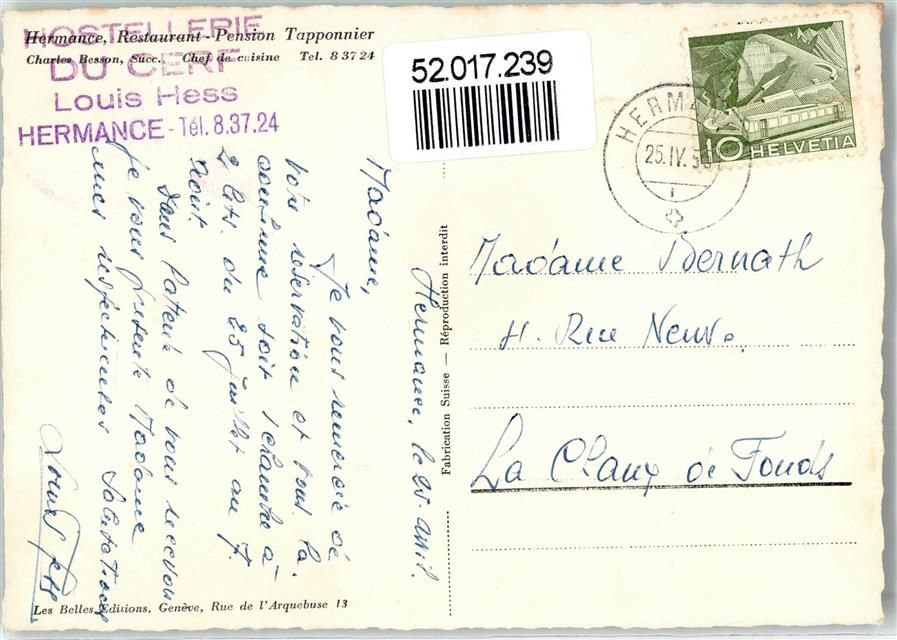 HOSTELLERIE
DU CERF
Louis Hess
HERMANCE - Tél. 8.37.24
Hermance, Restaurant - Pension Tapponnier
Charles Besson, Succ. Chef de cuisine Tel. 8 37 24
52.017.239
HERMANCE
25.IV.5
10 HELVETIA
Hermance, le 25. Avril.
Madame,
Je vous remercie de
votre réservation et vous la
confirme soit 1 chambre à
2 lits. du 25 juillet au 7.
Août.
Dans l'attente de vous recevoir
je vous présente Madame
mes respectueuses salutations
Louis Hess
Fabrication Suisse — Réproduction interdit
Madame Bernath
11. Rue Neuve.
La Chaux de Fonds
Les Belles Editions, Genève, Rue de l'Arquebuse 13